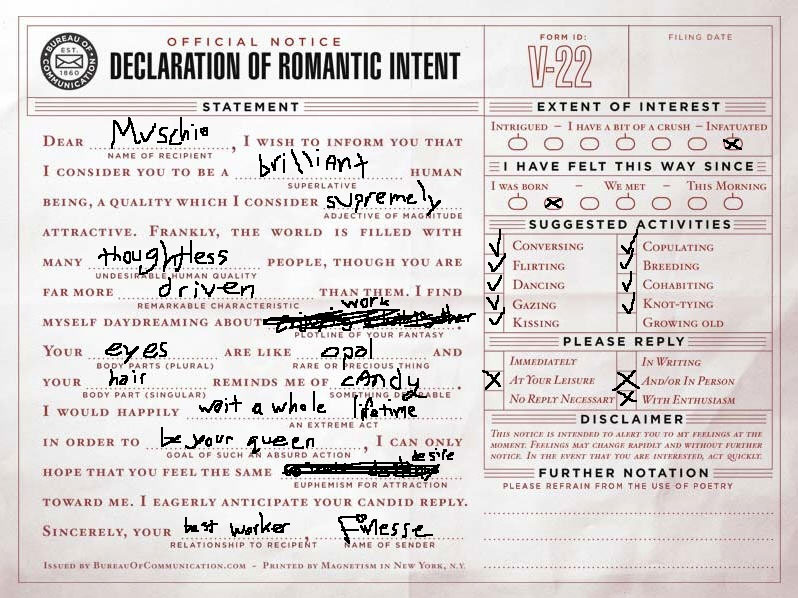 BUREAU OF COMMUNICATION
EST. 1860
OFFICIAL NOTICE
DECLARATION OF ROMANTIC INTENT
FORM ID:
V-22
FILING DATE
STATEMENT
DEAR Muschio, I WISH TO INFORM YOU THAT
NAME OF RECIPIENT
I CONSIDER YOU TO BE A brilliant HUMAN
SUPERLATIVE
BEING, A QUALITY WHICH I CONSIDER supremely
ADJECTIVE OF MAGNITUDE
ATTRACTIVE. FRANKLY, THE WORLD IS FILLED WITH
MANY thoughtless PEOPLE, THOUGH YOU ARE
UNDESIRABLE HUMAN QUALITY
FAR MORE driven THAN THEM. I FIND
REMARKABLE CHARACTERISTIC
MYSELF DAYDREAMING ABOUT work.
PLOTLINE OF YOUR FANTASY
YOUR eyes ARE LIKE opal AND
BODY PARTS (PLURAL) RARE OR PRECIOUS THING
YOUR hair REMINDS ME OF cANdy.
BODY PART (SINGULAR) SOMETHING DESIRABLE
I WOULD HAPPILY wait a whole lifetime
AN EXTREME ACT
IN ORDER TO be your queen, I CAN ONLY
GOAL OF SUCH AN ABSURD ACTION
HOPE THAT YOU FEEL THE SAME desire
EUPHEMISM FOR ATTRACTION
TOWARD ME. I EAGERLY ANTICIPATE YOUR CANDID REPLY.
SINCERELY, YOUR best worker, Finlesse
RELATIONSHIP TO RECIPENT NAME OF SENDER
ISSUED BY BUREAUOFCOMMUNICATION.COM - PRINTED BY MAGNETISM IN NEW YORK, N.Y.
EXTENT OF INTEREST
INTRIGUED – I HAVE A BIT OF A CRUSH – INFATUATED
I HAVE FELT THIS WAY SINCE
I WAS BORN – WE MET – THIS MORNING
SUGGESTED ACTIVITIES
CONVERSING COPULATING
FLIRTING BREEDING
DANCING COHABITING
GAZING KNOT-TYING
KISSING GROWING OLD
PLEASE REPLY
IMMEDIATELY IN WRITING
AT YOUR LEISURE AND/OR IN PERSON
NO REPLY NECESSARY WITH ENTHUSIASM
DISCLAIMER
THIS NOTICE IS INTENDED TO ALERT YOU TO MY FEELINGS AT THE
MOMENT. FEELINGS MAY CHANGE RAPIDLY AND WITHOUT FURTHER
NOTICE. IN THE EVENT THAT YOU ARE INTERESTED, ACT QUICKLY.
FURTHER NOTATION
PLEASE REFRAIN FROM THE USE OF POETRY